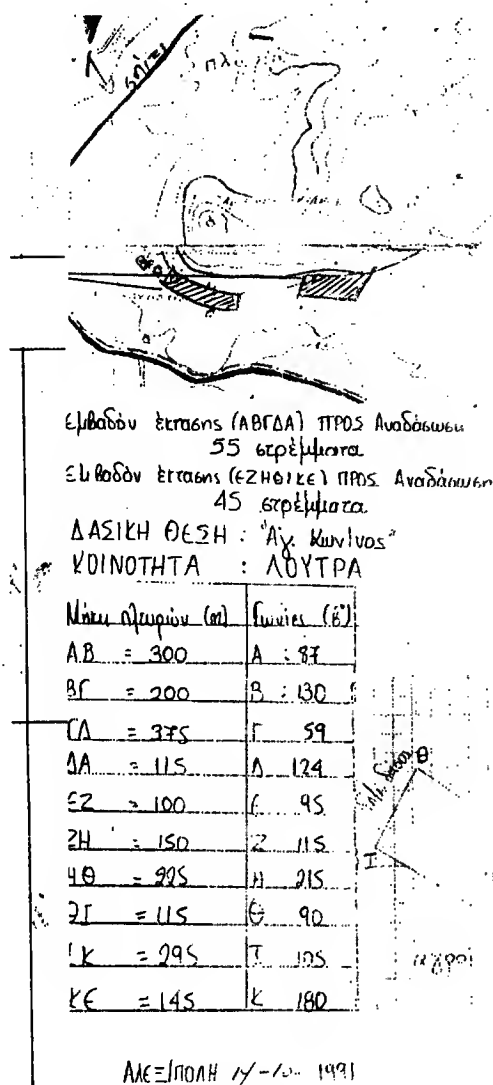 σπίτι
Εμβαδόν έκτασης (ΑΒΓΔΑ) ΠΡΟΣ Αναδάσωση
55 στρέμματα
Εμβαδόν έκτασης (ΕΖΗΘΙΚΕ) ΠΡΟΣ Αναδάσωση
45 στρέμματα
ΔΑΣΙΚΗ ΘΕΣΗ : "Αγ.
ΚΟΙΝΟΤΗΤΑ : ΛΟΥΤΡΑ
Μήκη πλευρών (m) Γωνίες (g)
ΑΒ = 300 Α : 87
ΒΓ = 200 Β : 130
ΓΔ = 375 Γ 59
ΔΑ = 115 Δ 124
ΕΖ = 100 Ε 95
ΖΗ = 150 Ζ 115
ΗΘ = 225 Η 215
ΘΙ = 115 Θ 90
ΙΚ = 295 Ι 105
ΚΕ = 145 Κ 180
Θ
Ι
αγροί
ΑΛΕΞ/ΠΟΛΗ 14-10-1991